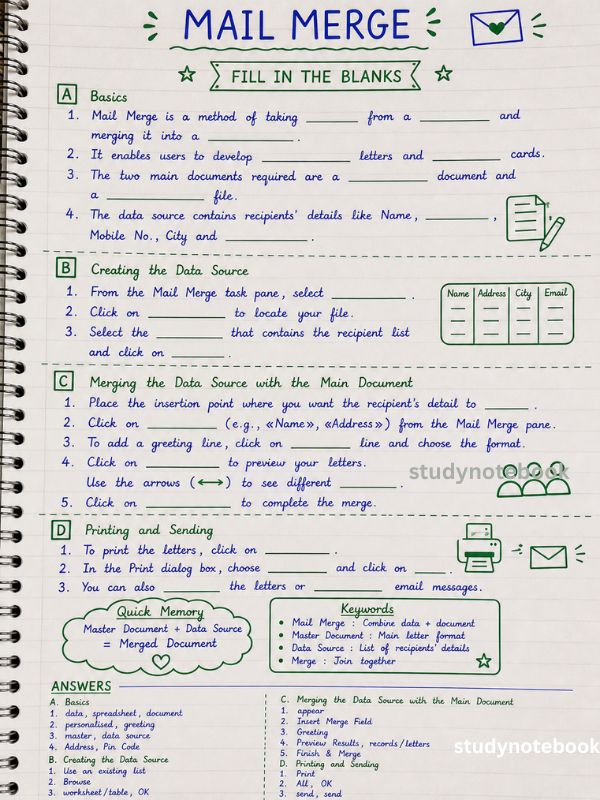 MAIL MERGE
FILL IN THE BLANKS
A Basics
1. Mail Merge is a method of taking ________ from a ________ and
merging it into a ________.
2. It enables users to develop ________ letters and ________ cards.
3. The two main documents required are a ________ document and
a ________ file.
4. The data source contains recipients' details like Name, ________,
Mobile No., City and ________.
B Creating the Data Source
1. From the Mail Merge task pane, select ________.
2. Click on ________ to locate your file.
3. Select the ________ that contains the recipient list
and click on ________.
Name Address City Email
C Merging the Data Source with the Main Document
1. Place the insertion point where you want the recipient's detail to ________.
2. Click on ________ (e.g., «Name», «Address») from the Mail Merge pane.
3. To add a greeting line, click on ________ line and choose the format.
4. Click on ________ to preview your letters.
Use the arrows (↔) to see different ________.
5. Click on ________ to complete the merge.
studynotebook
D Printing and Sending
1. To print the letters, click on ________.
2. In the Print dialog box, choose ________ and click on ________.
3. You can also ________ the letters or ________ email messages.
Quick Memory
Master Document + Data Source
= Merged Document
Keywords
• Mail Merge : Combine data + document
• Master Document : Main letter format
• Data Source : List of recipients' details
• Merge : Join together
ANSWERS
A. Basics
1. data, spreadsheet, document
2. personalised, greeting
3. master, data source
4. Address, Pin Code
B. Creating the Data Source
1. Use an existing list
2. Browse
3. worksheet/table, OK
C. Merging the Data Source with the Main Document
1. appear
2. Insert Merge Field
3. Greeting
4. Preview Results, records/letters
5. Finish & Merge
D. Printing and Sending
1. Print
2. All, OK
3. send, send
studynotebook